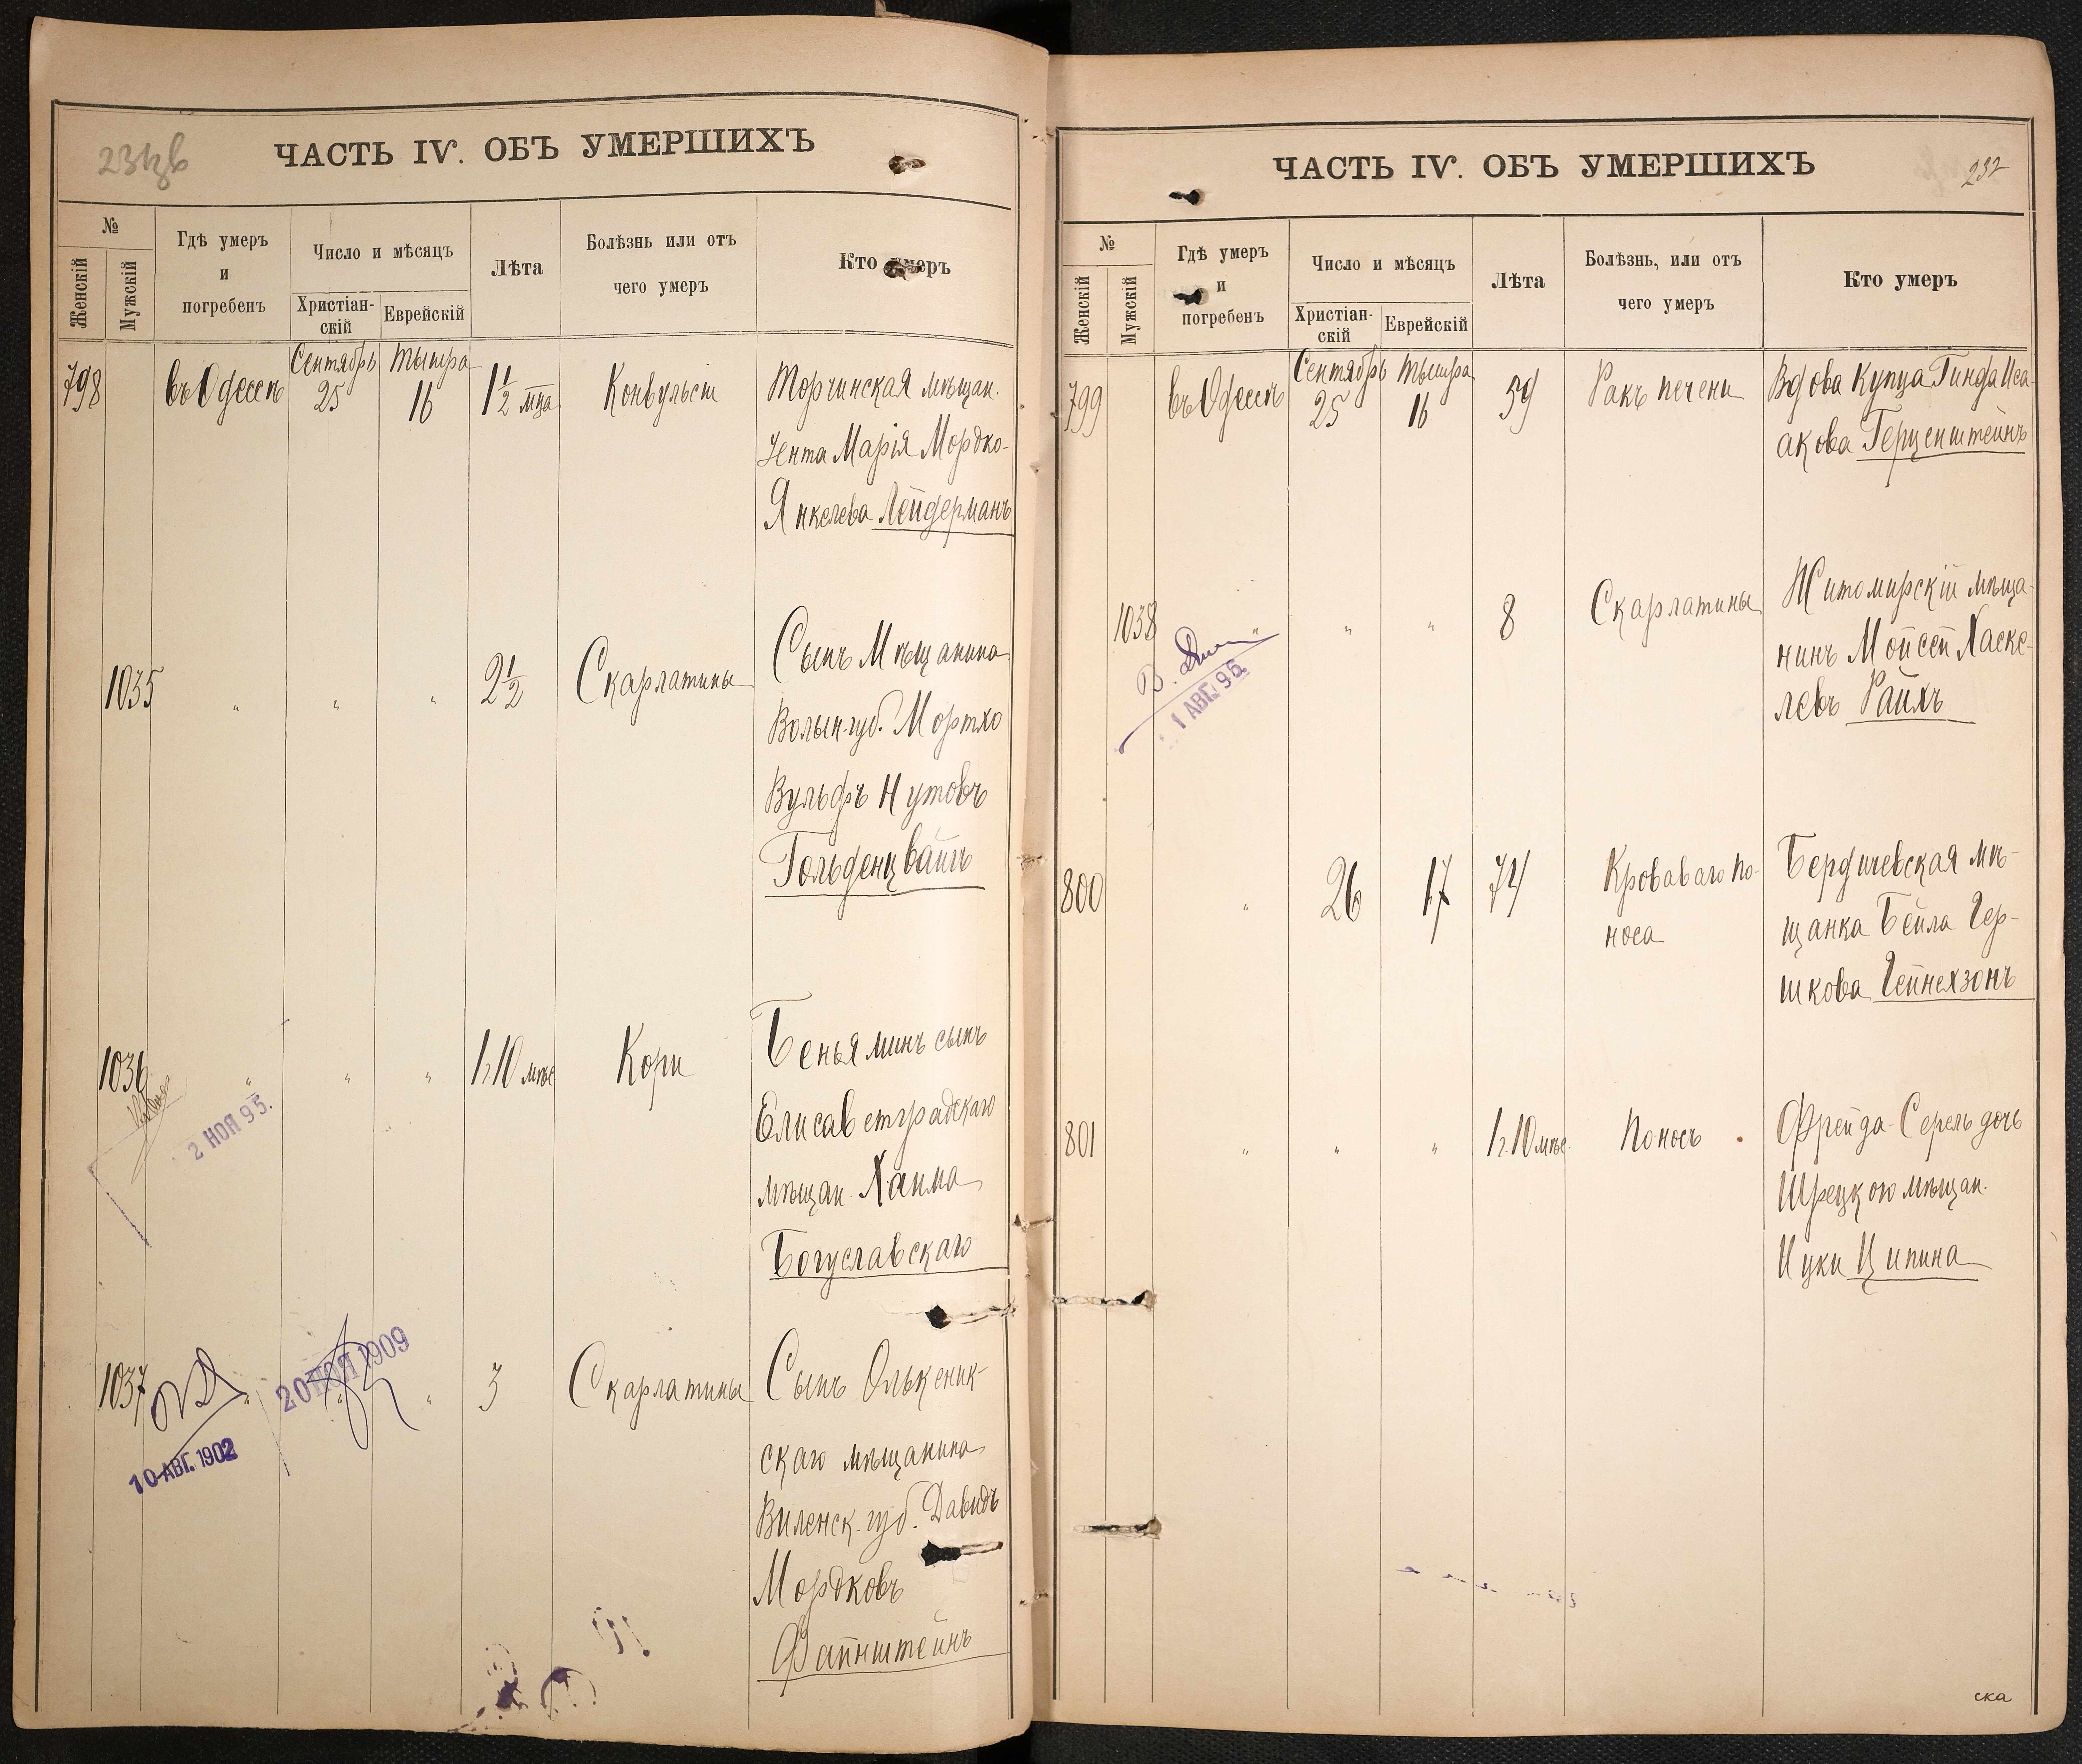 ЧАСТЬ IV. ОБЪ УМЕРШИХЪ
№
Женскій
Мужскій
Гдѣ умеръ
и
погребенъ
Число и мѣсяцъ
Христіан-
скій
Еврейскій
Лѣта
Болѣзнь или отъ
чего умеръ
Кто умеръ
798
въ Одессѣ
Сентябрь
25
Тышра
16
1½ мца
Конвульсіи
Торчинская мѣщан.
Ента Марія Мордко-
Янкелева Лейдерманъ
1035
" " "
2½
Скарлатины
Сынъ Мѣщанина
Волын. губ. Мортхо
Вульфъ Нутовъ
Гольденцвайгъ
1036
" " "
1 г. 10 мѣс
Кори
Беньяминъ сынъ
Елисаветградскаго
мѣщан. Хаима
Богуславскаго
2 НОЯ 95.
1037
" " "
3
Скарлатины
Сынъ Олькеник-
скаго мѣщанина
Виленск. губ. Давидъ
Мордковъ
Файнштейнъ
20 НОЯ 1909
10 АВГ. 1902
ЧАСТЬ IV. ОБЪ УМЕРШИХЪ
232
№
Женскій
Мужскій
Гдѣ умеръ
и
погребенъ
Число и мѣсяцъ
Христіан-
скій
Еврейскій
Лѣта
Болѣзнь, или отъ
чего умеръ
Кто умеръ
799
въ Одессѣ
Сентябрь
25
Тышра
16
59
Ракъ печени
Вдова Купца Гинда Иса-
акова Герценштейнъ
1038
" " "
8
Скарлатины
Житомирскій мѣща-
нинъ Мойсей Хаске-
левъ Райхъ
1 АВГ. 96.
800
"
26
17
74
Кроваваго по-
носа
Бердичевская мѣ-
щанка Бейла Гер-
шкова Гейнехзонъ
801
" " "
1 г. 10 мѣс.
Поносъ
Фрейда-Серель дочь
мѣщан.
Ицки Ципина
ска